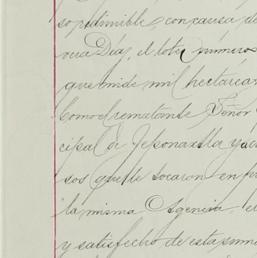 so redimible, con causa de
oria Díaz, el lote numero s
que mide mil hectareas
Como rematante Señor
cipal de Jesonaxtla y ac
sos que le tocaron en p
la misma Agencia, e
y satisfecho de esta suma